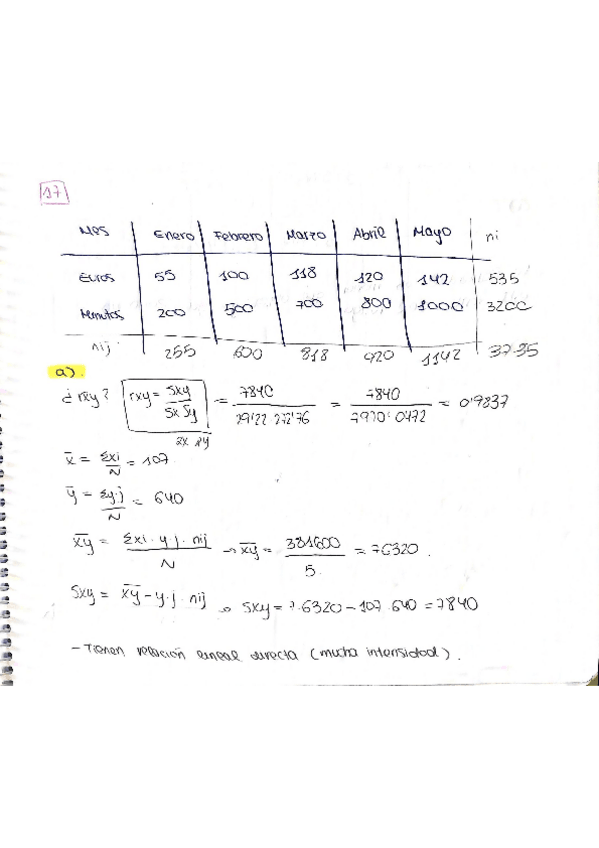 17
Mes Enero Febrero Marzo Abril Mayo ni
Euros 55 100 118 120 142 535
Minutos 200 500 700 800 1000 3200
nij 255 600 818 920 1142 3735
a).
¿rxy? rxy = Sxy / Sx Sy = 7840 / 29'22·272'76 = 7840 / 7970'0472 = 0'9837
x̄ = Σxi / N = 107
ȳ = Σyj / N = 640
x̄ȳ = Σxi·yj·nij / N → x̄ȳ = 381600 / 5 = 76320.
Sxy = x̄ȳ - yj·nij → Sxy = 76320 - 107·640 = 7840
- Tienen relación lineal directa (mucha intensidad).